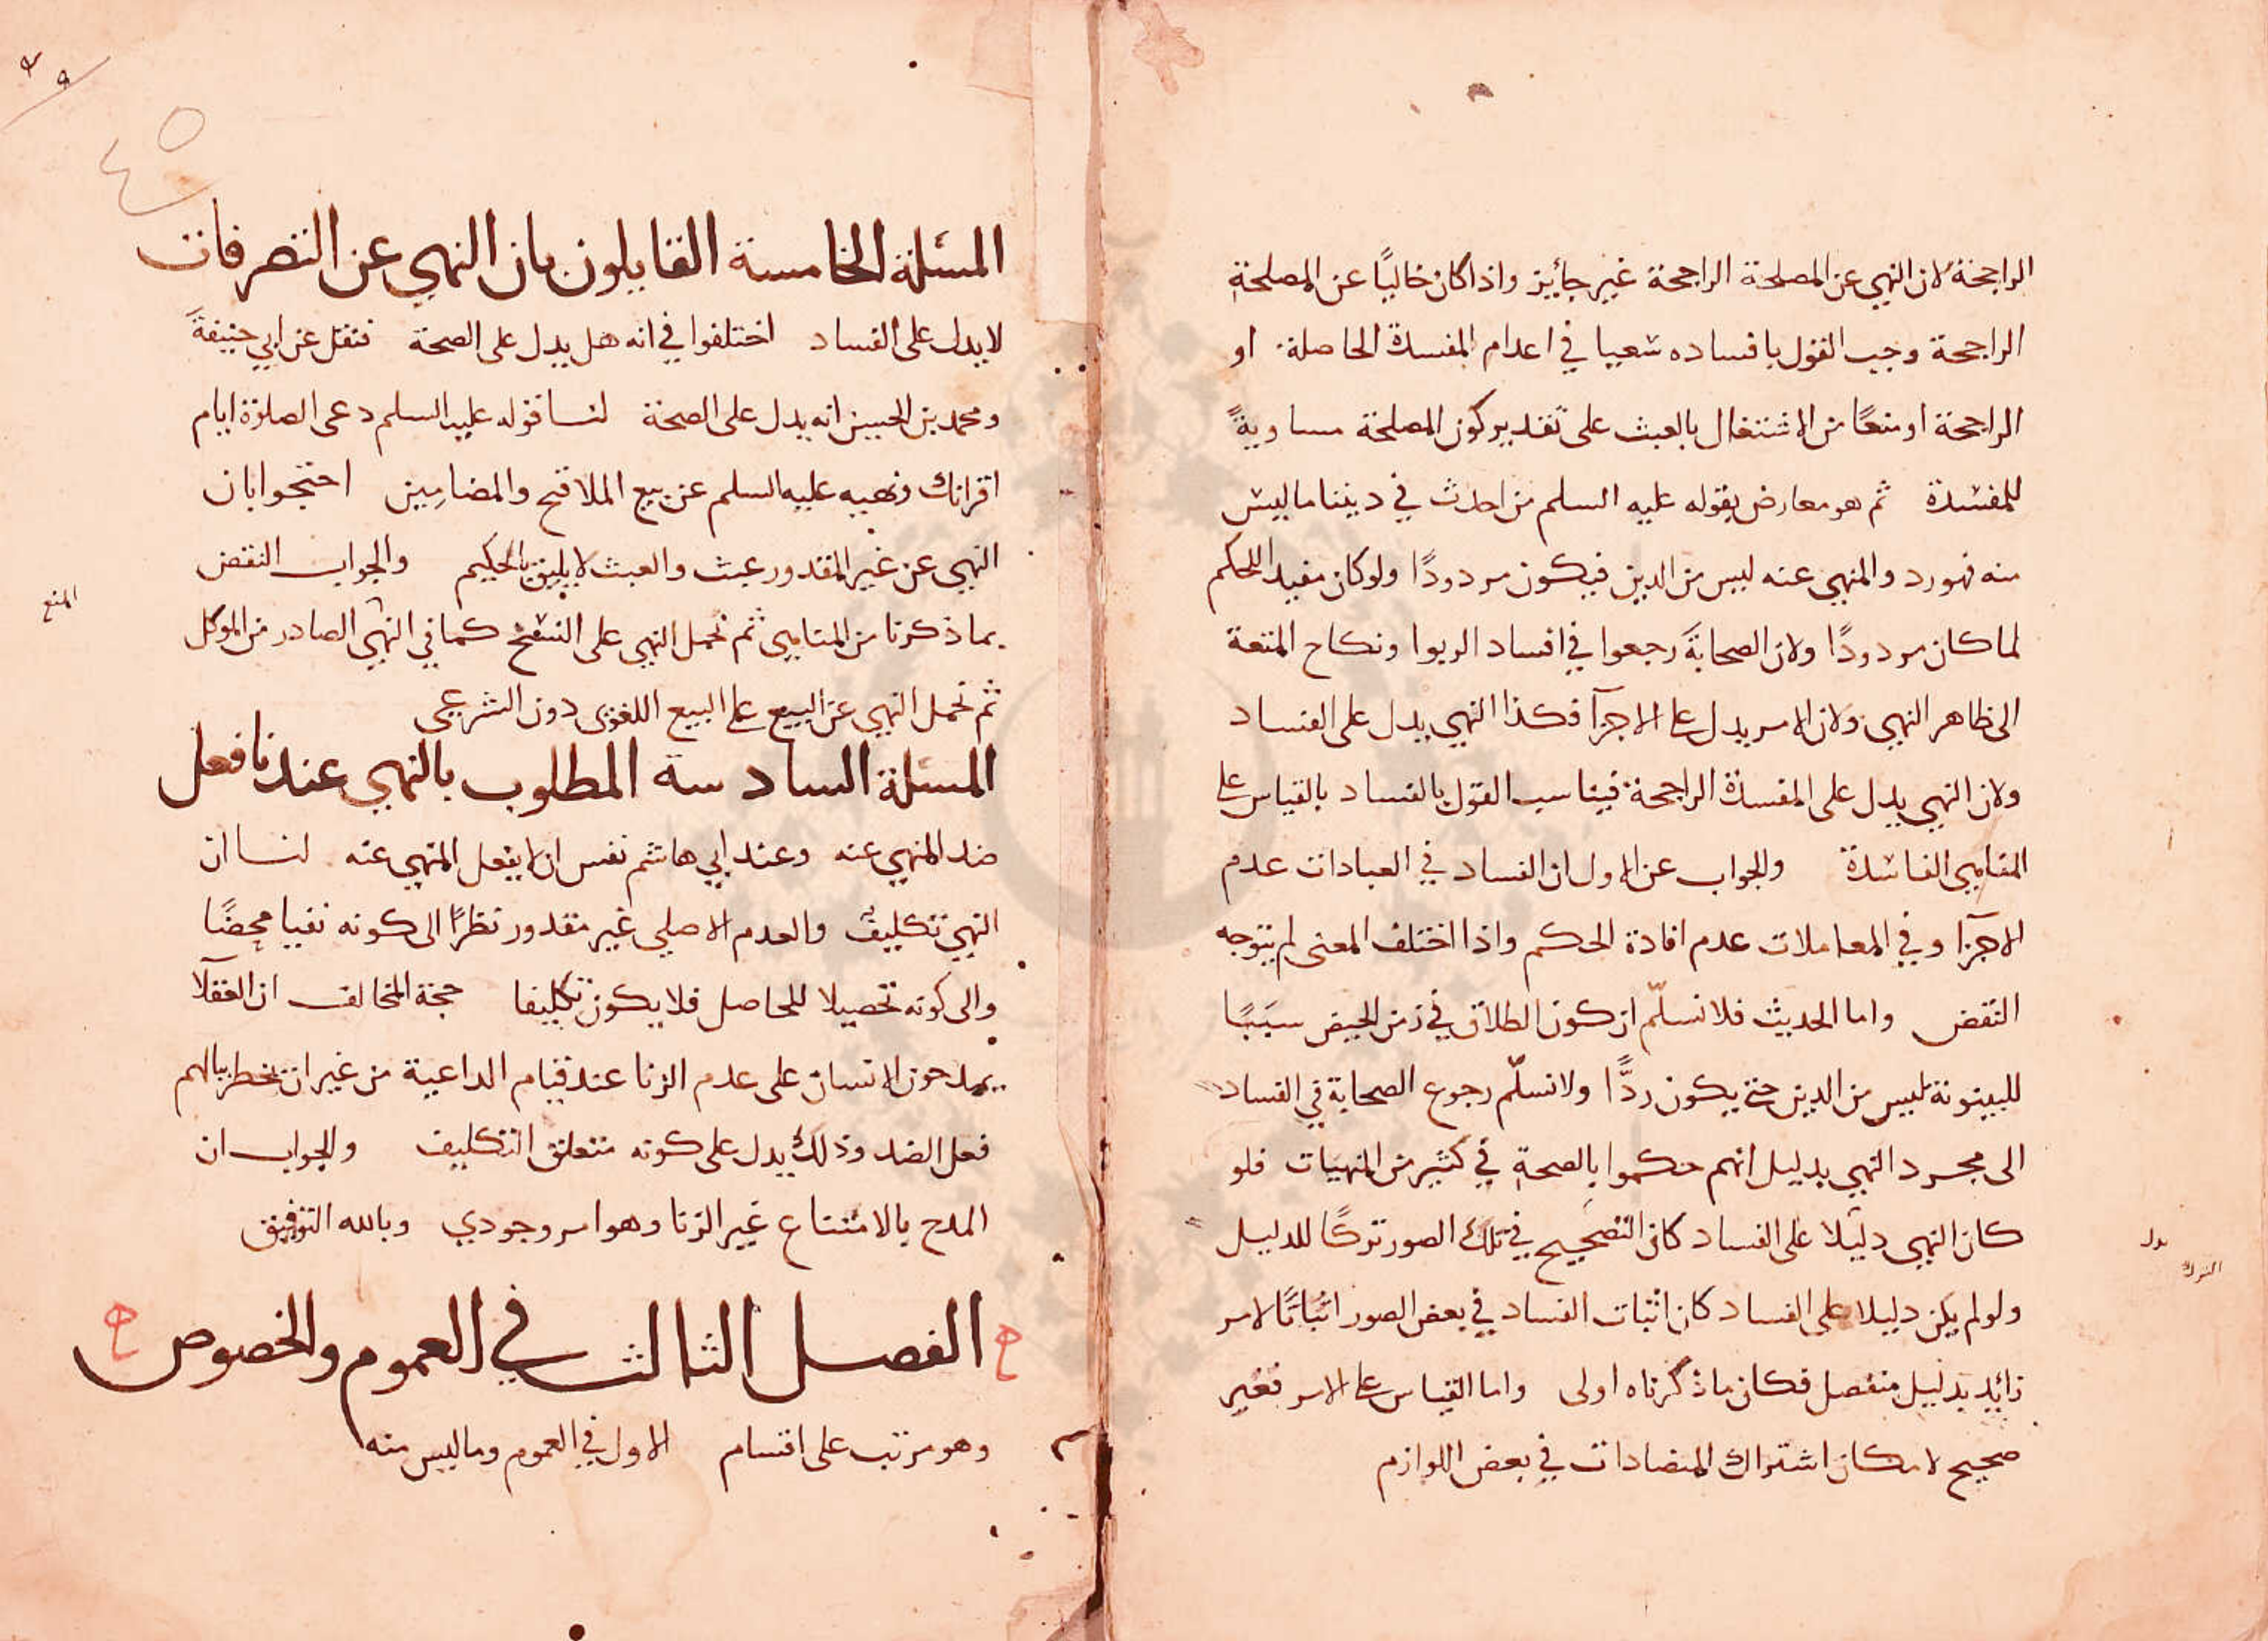 الراجحة لان النهي عن المصلحة الراجحة غير جائز واذا كان خاليًا عن المصلحة
الراجحة وجب القول بافساده سعيا في اعدام المفسدة الحاصلة او
الراجحة او منعًا من الاشتغال بالعبث على تقدير كون المصلحة مساويةً
للمفسدة ثم هو معارض بقوله عليه السلم من احدث في ديننا ما ليس
منه فهو رد والمنهي عنه ليس من الدين فيكون مردودًا ولو كان مفيدا للحكم
لما كان مردودًا ولان الصحابةَ رجعوا في افساد الربوا ونكاح المتعة
الى ظاهر النهي ولان الامر يدل على الاجزآ فكذا النهي يدل على الفساد
ولان النهي يدل على المفسدة الراجحة فيناسب القول بالفساد بالقياس على
المناهي الفاسدة والجواب عن الاول ان الفساد في العبادات عدم
الاجزآ وفي المعاملات عدم افادة الحكم واذا اختلف المعنى لم يتوجه
النقض واما الحديث فلا نسلّم ان كون الطلاق في زمن الحيض سببًا
للبينونة ليس من الدين حتى يكون ردًّا ولا نسلّم رجوع الصحابة في الفساد
الى مجرد النهي بدليل انهم حكموا بالصحة في كثير من المنهيات فلو
كان النهي دليلا على الفساد كان التصحيح في تلك الصور تركًا للدليل
ولو لم يكن دليلا على الفساد كان اثبات الفساد في بعض الصور اثباتًا لامر
زائد بدليل منفصل فكان ما ذكرناه اولى واما القياس على الامر فغير
صحيح لامكان اشتراك المتضادات في بعض اللوازم
الترك
٤٥
المسئلة الخامسة القايلون بان النهي عن التصرفات
لا يدل على الفساد اختلفوا في انه هل يدل على الصحة فنقل عن ابي حنيفةَ
ومحمد بن الحسن انه يدل على الصحة لنا قوله عليه السلم دعى الصلوة ايام
اقرائك ونهيه عليه السلم عن بيع الملاقح والمضامين احتجوا بان
النهي عن غير المقدور عبث والعبث لا يليق بالحكيم والجواب النقض
بما ذكرنا من المناهي ثم نحمل النهي على النسخ كما في النهي الصادر من الموكل
المنع
ثم نحمل النهي عن البيع على البيع اللغوى دون الشرعي
المسئلة السادسة المطلوب بالنهي عندنا فعل
ضد المنهي عنه وعند ابي هاشم نفس ان لا يفعل المنهي عنه لنا ان
النهي تكليف والعدم الاصلي غير مقدور نظرًا الى كونه نفيا محضًا
والى كونه تحصيلا للحاصل فلا يكون تكليفا حجة المخالف ان العقلآ
يمدحون الانسان على عدم الزنا عند قيام الداعية من غير ان يخطر ببالهم
فعل الضد وذلك يدل على كونه متعلق التكليف والجواب ان
المدح بالامتناع غير الزنا وهو امر وجودي وبالله التوفيق
الفصل الثالث في العموم والخصوص
وهو مرتب على اقسام الاول في العموم وما ليس منه